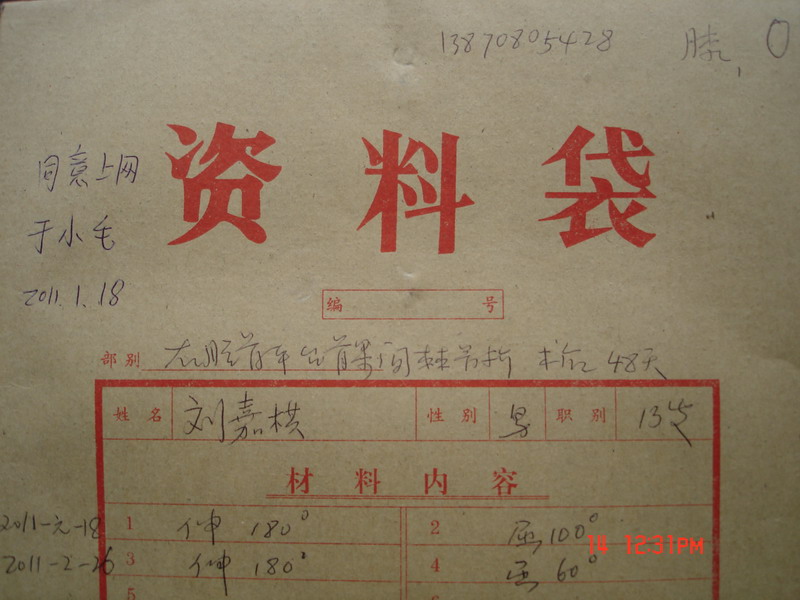 13870805428 膝, 0
资料袋
同意上网
于小毛
2011.1.18
编 号
部别 左胫骨平台髁间棘骨折 术后48天
姓名 刘嘉棋 性别 男 职别 13岁
材料内容
2011-元-18 1 伸 180° 2 屈 100°
14 12:31PM
2011-2-26 3 伸 180° 4 屈 60°
5